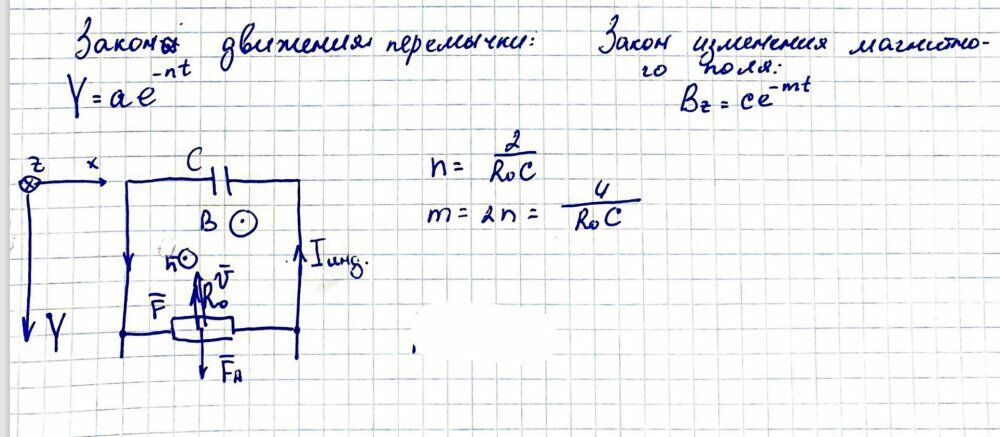 Закон движения перемычки:
Y = ae^{-nt}
Закон изменения магнитно-
го поля:
B_z = ce^{-mt}
n = \frac{2}{R_0C}
m = 2n = \frac{4}{R_0C}
z x
C
B
I инд.
n̄
v̄
F̄ R_0
Y
F̄_A